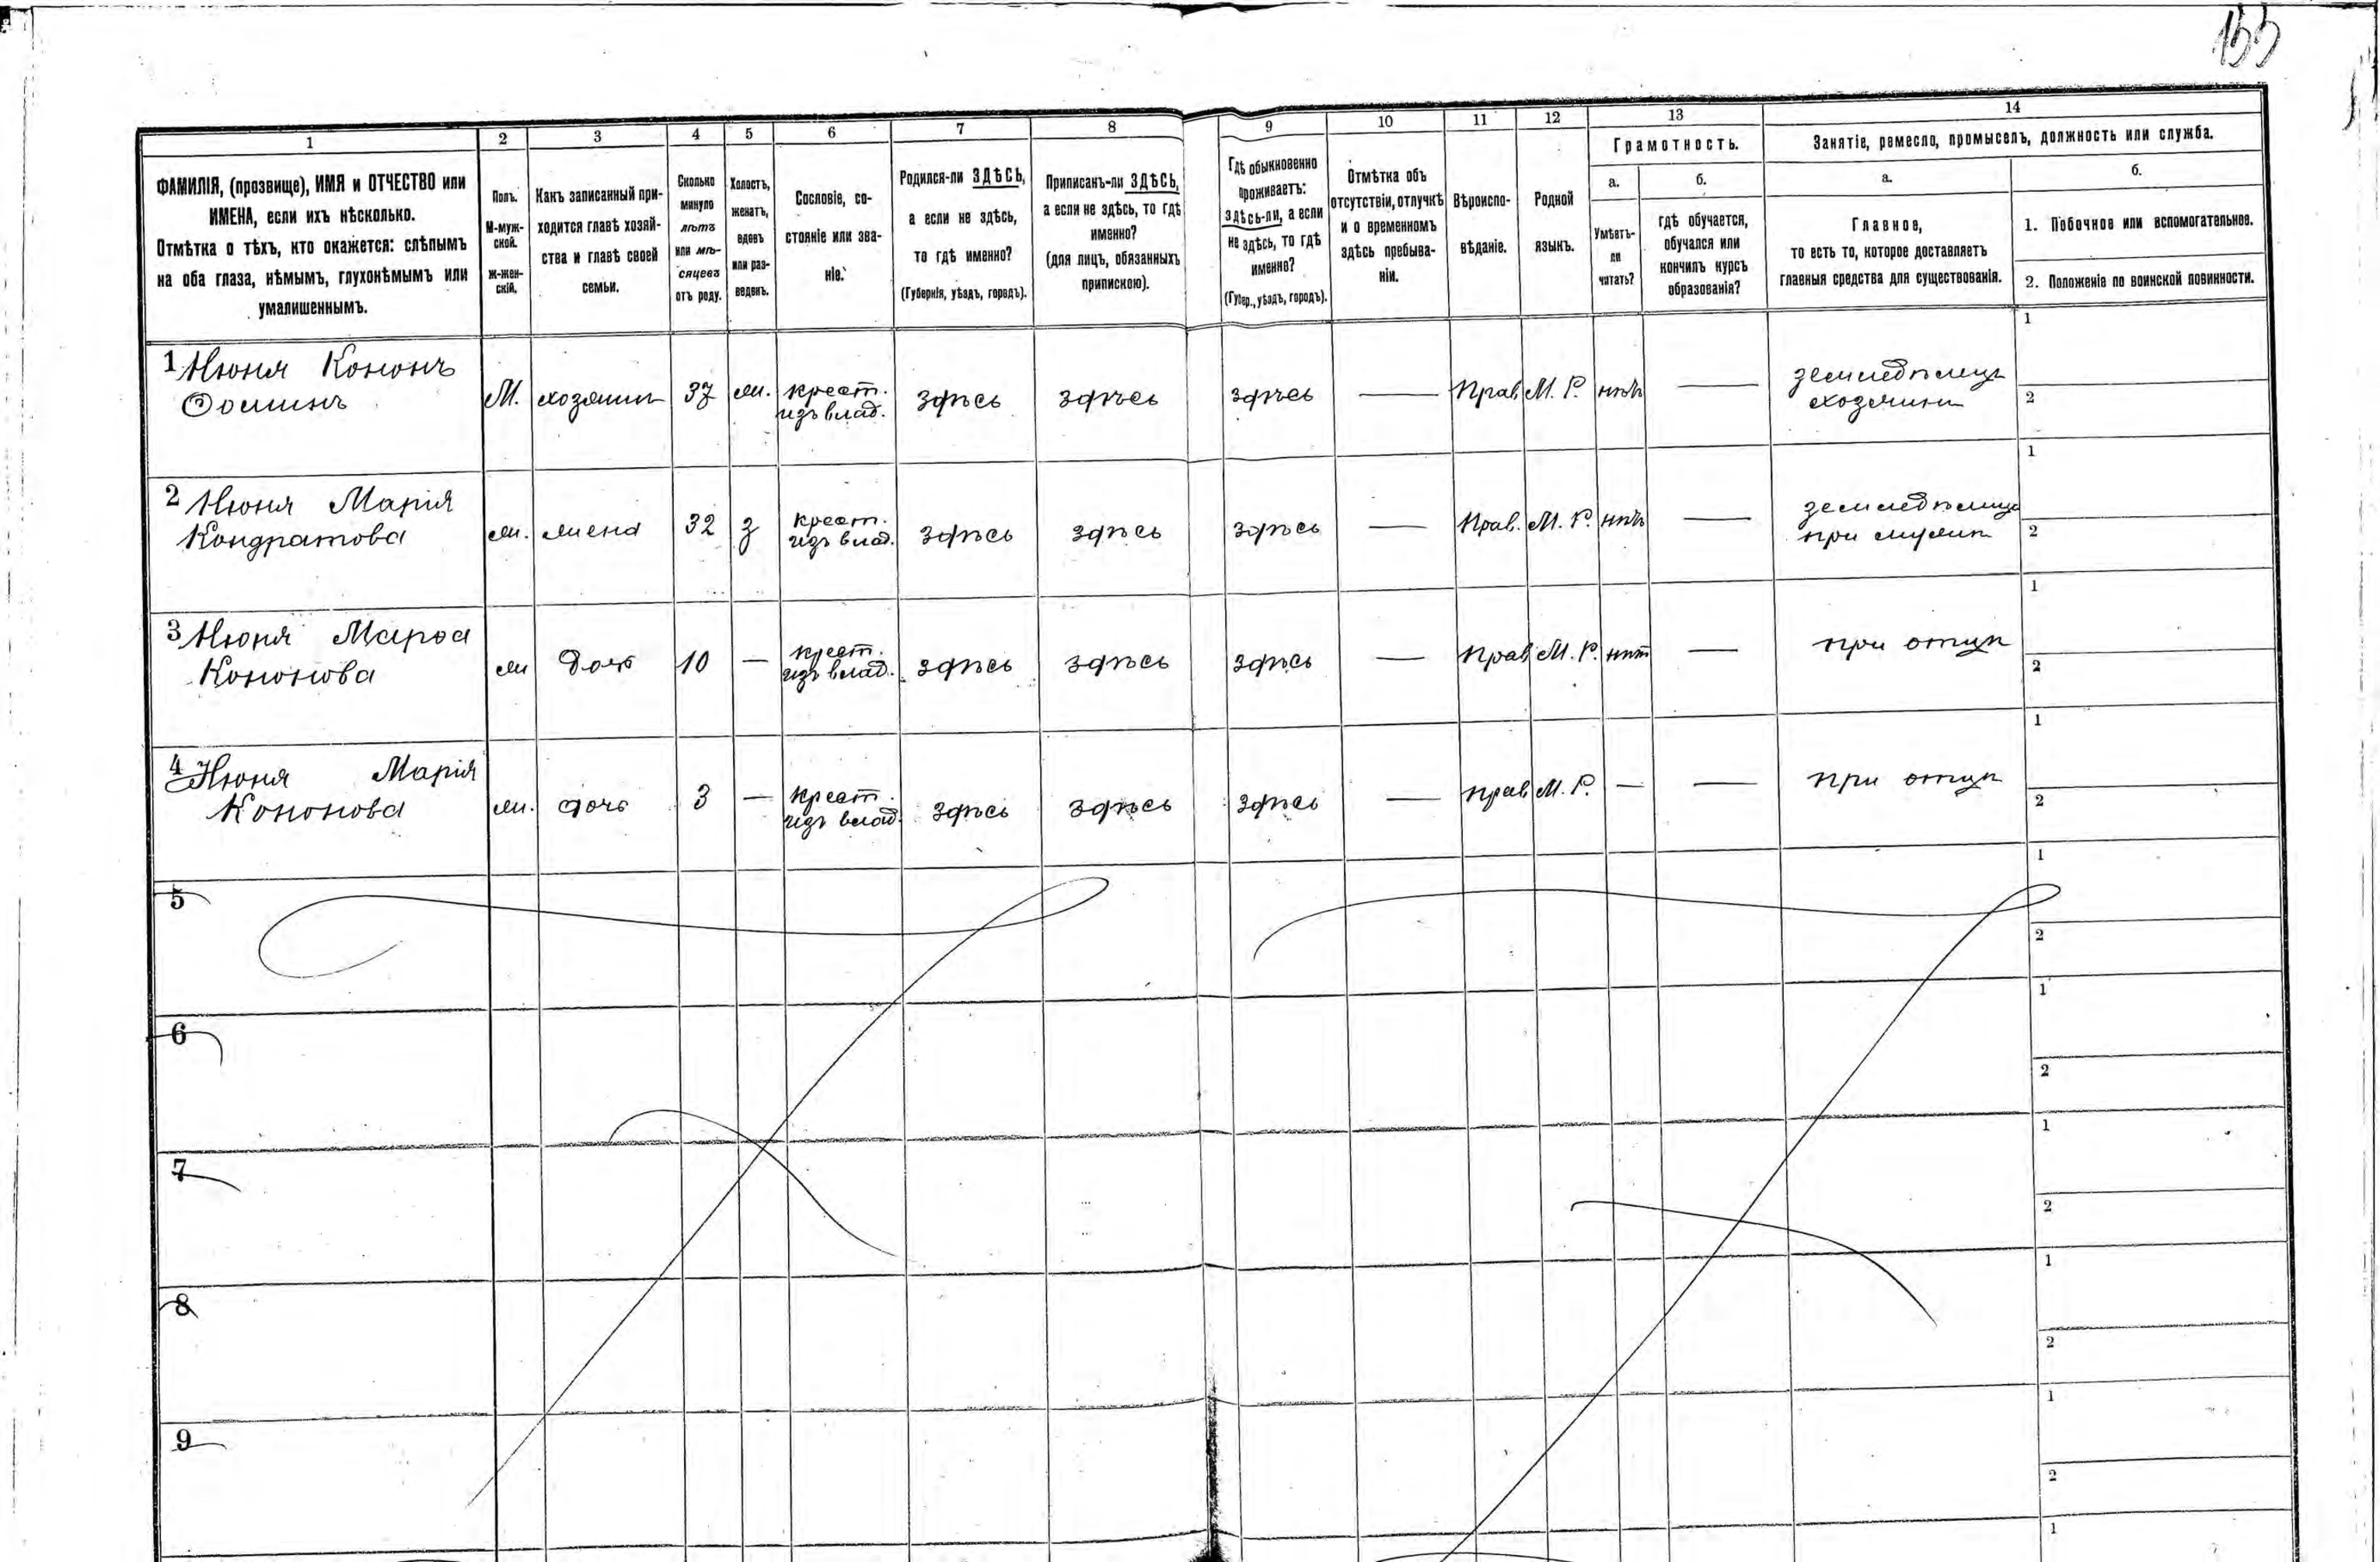 155
1
2
3
4
5
6
7
8
9
10
11
12
13
14
ФАМИЛІЯ, (прозвище), ИМЯ и ОТЧЕСТВО или
ИМЕНА, если ихъ нѣсколько.
Отмѣтка о тѣхъ, кто окажется: слѣпымъ
на оба глаза, нѣмымъ, глухонѣмымъ или
умалишеннымъ.
Полъ.
М-муж-
ской.
Ж-жен-
скій.
Какъ записанный при-
ходится главѣ хозяй-
ства и главѣ своей
семьи.
Сколько
минуло
лѣтъ
или мѣ-
сяцевъ
отъ роду.
Холостъ,
женатъ,
вдовъ
или раз-
веденъ.
Сословіе, со-
стояніе или зва-
ніе.
Родился-ли ЗДѢСЬ,
а если не здѣсь,
то гдѣ именно?
(Губернія, уѣздъ, городъ).
Приписанъ-ли ЗДѢСЬ,
а если не здѣсь, то гдѣ
именно?
(для лицъ, обязанныхъ
припискою).
Гдѣ обыкновенно
проживаетъ:
здѣсь-ли, а если
не здѣсь, то гдѣ
именно?
(Губер., уѣздъ, городъ).
Отмѣтка объ
отсутствіи, отлучкѣ
и о временномъ
здѣсь пребыва-
ніи.
Вѣроиспо-
вѣданіе.
Родной
языкъ.
Грамотность.
а.
Умѣетъ-
ли
читать?
б.
гдѣ обучается,
обучался или
кончилъ курсъ
образованія?
Занятіе, ремесло, промыселъ, должность или служба.
а.
Главное,
то есть то, которое доставляетъ
главныя средства для существованія.
б.
1. Побочное или вспомогательное.
2. Положеніе по воинской повинности.
1 Нюня Кононъ
Ѳоминъ
М.
хозяинъ
37
ж.
крест.
изъ влад.
здѣсь
здѣсь
здѣсь
—
Прав
М. Р.
нѣтъ
—
земледѣлецъ
хозяинъ
1
2
2 Нюня Марія
Кондратова
ж.
жена
32
з
крест.
изъ влад.
здѣсь
здѣсь
здѣсь
—
Прав.
М. Р.
нѣтъ
—
земледѣлецъ
при мужѣ
1
2
3 Нюня Марѳа
Кононова
ж
дочь
10
—
крест.
изъ влад.
здѣсь
здѣсь
здѣсь
—
прав
М. Р.
нѣт
—
при отцѣ
1
2
4 Нюня Марія
Кононова
ж.
дочь
3
—
крест.
изъ влад.
здѣсь
здѣсь
здѣсь
—
прав
М. Р.
—
—
при отцѣ
1
2
5
1
2
6
1
2
7
1
2
8
1
2
9
1
2
1